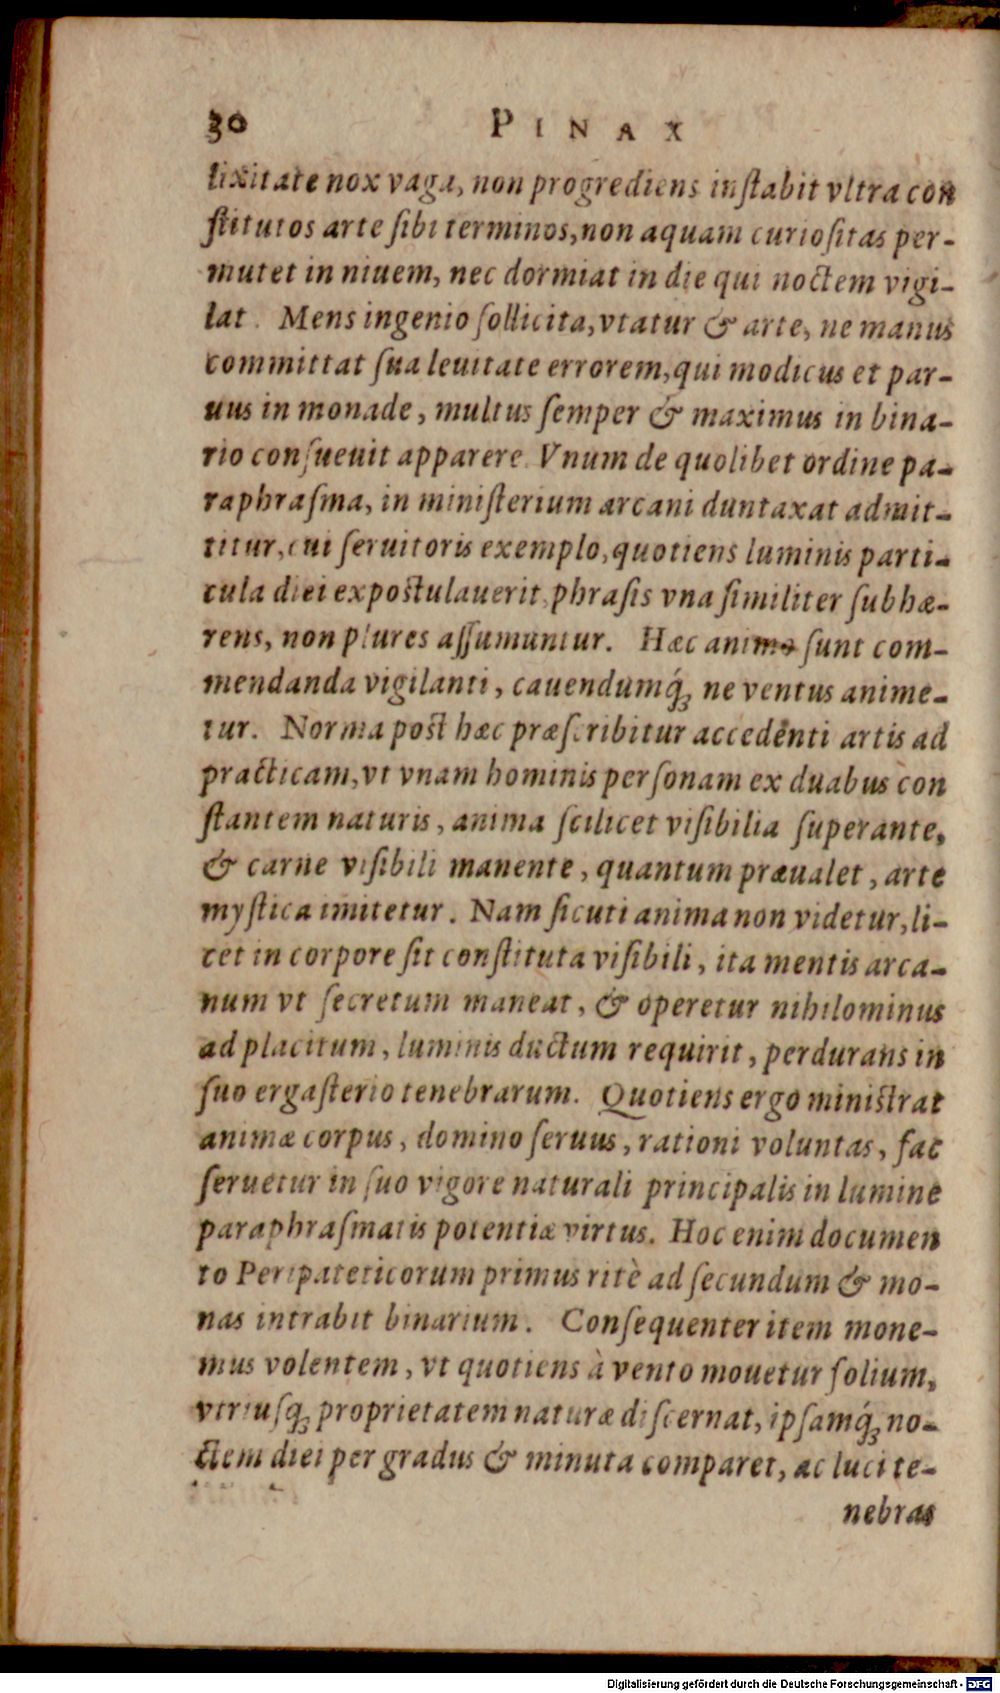 30 PINAX
lixitate nox vaga, non progrediens inſtabit vltra con
ſtitutos arte ſibi terminos, non aquam curioſitas per-
mutet in niuem, nec dormiat in die qui noctem vigi-
lat. Mens ingenio ſollicita, vtatur & arte, ne manus
committat ſua leuitate errorem, qui modicus et par-
uus in monade, multus ſemper & maximus in bina-
rio conſueuit apparere. Vnum de quolibet ordine pa-
raphraſma, in miniſterium arcani duntaxat admit-
titur, cui ſeruitoris exemplo, quotiens luminis parti-
cula diei expoſtulauerit, phraſis vna ſimiliter ſubhæ-
rens, non plures aſſumuntur. Hæc animo ſunt com-
mendanda vigilanti, cauendumq́ꝫ ne ventus anime-
tur. Norma poſt hæc præſcribitur accedēnti artis ad
practicam, vt vnam hominis perſonam ex duabus con
ſtantem naturis, anima ſcilicet viſibilia ſuperante,
& carne viſibili manente, quantum præualet, arte
myſtica imitetur. Nam ſicuti anima non videtur, li-
cet in corpore ſit conſtituta viſibili, ita mentis arca-
num vt ſecretum maneat, & operetur nihilominus
ad placitum, luminis ductum requirit, perdurans in
ſuo ergaſterio tenebrarum. Quotiens ergo miniſtrat
animæ corpus, domino ſeruus, rationi voluntas, fac
ſeruetur in ſuo vigore naturali principalis in lumine
paraphraſmatis potentiæ virtus. Hoc enim documen
to Peripateticorum primus ritè ad ſecundum & mo-
nas intrabit binarium. Conſequenter item mone-
mus volentem, vt quotiens à vento mouetur folium,
vtriuſqꝫ proprietatem naturæ diſcernat, ipſamq́ꝫ no-
ctem diei per gradus & minuta comparet, ac luci te-
nebras
Digitalisierung gefördert durch die Deutsche Forschungsgemeinschaft - DFG